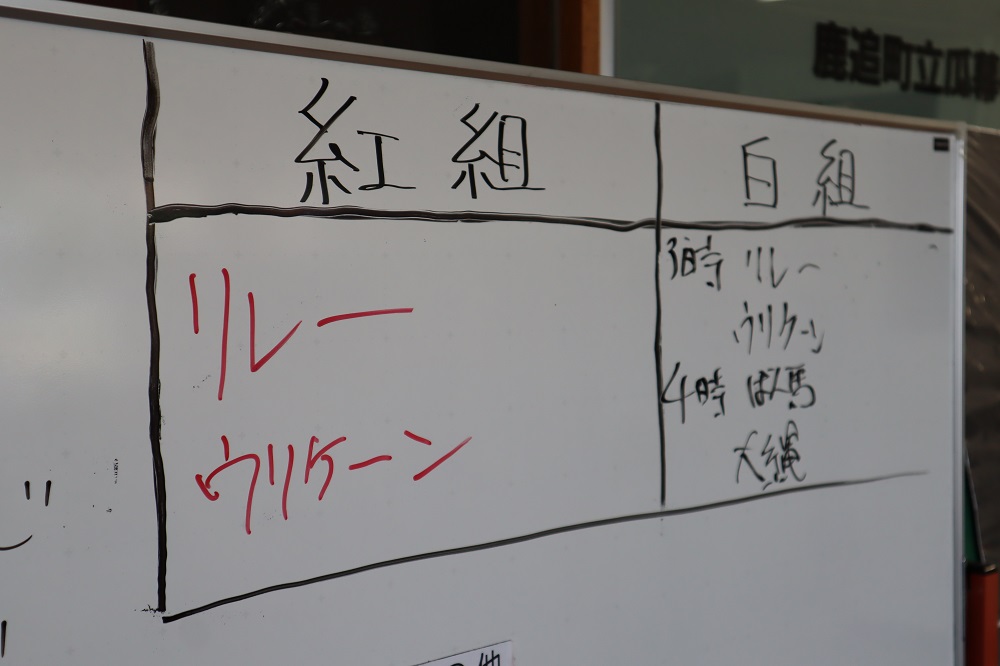 鹿追町立瓜幕
紅組
白組
リレー
ウリケーン
3時 リレー
ウリケーン
4時 ばん馬
大縄